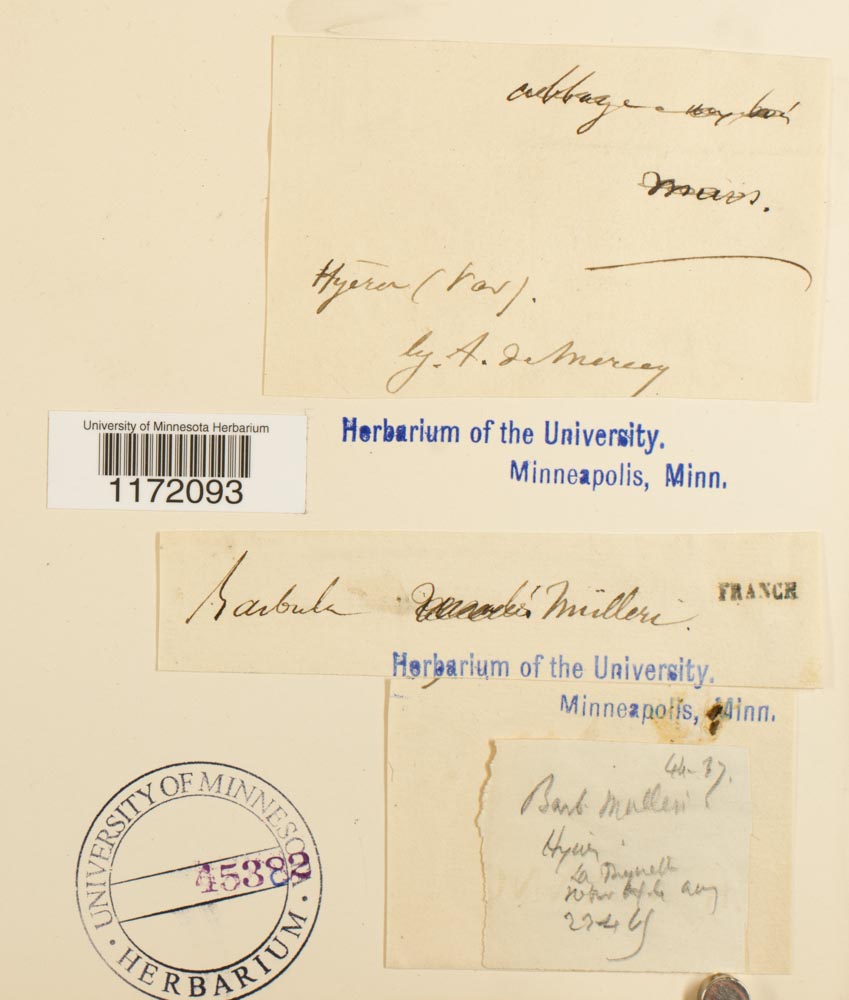 mars.
Hyères (Var).
leg. A. de Mercey
University of Minnesota Herbarium
1172093
Herbarium of the University.
Minneapolis, Minn.
Barbula Mülleri.
FRANCE
Herbarium of the University.
Minneapolis, Minn.
Barb Mulleri
Hyères
La
UNIVERSITY OF MINNESOTA
45382
· HERBARIUM ·